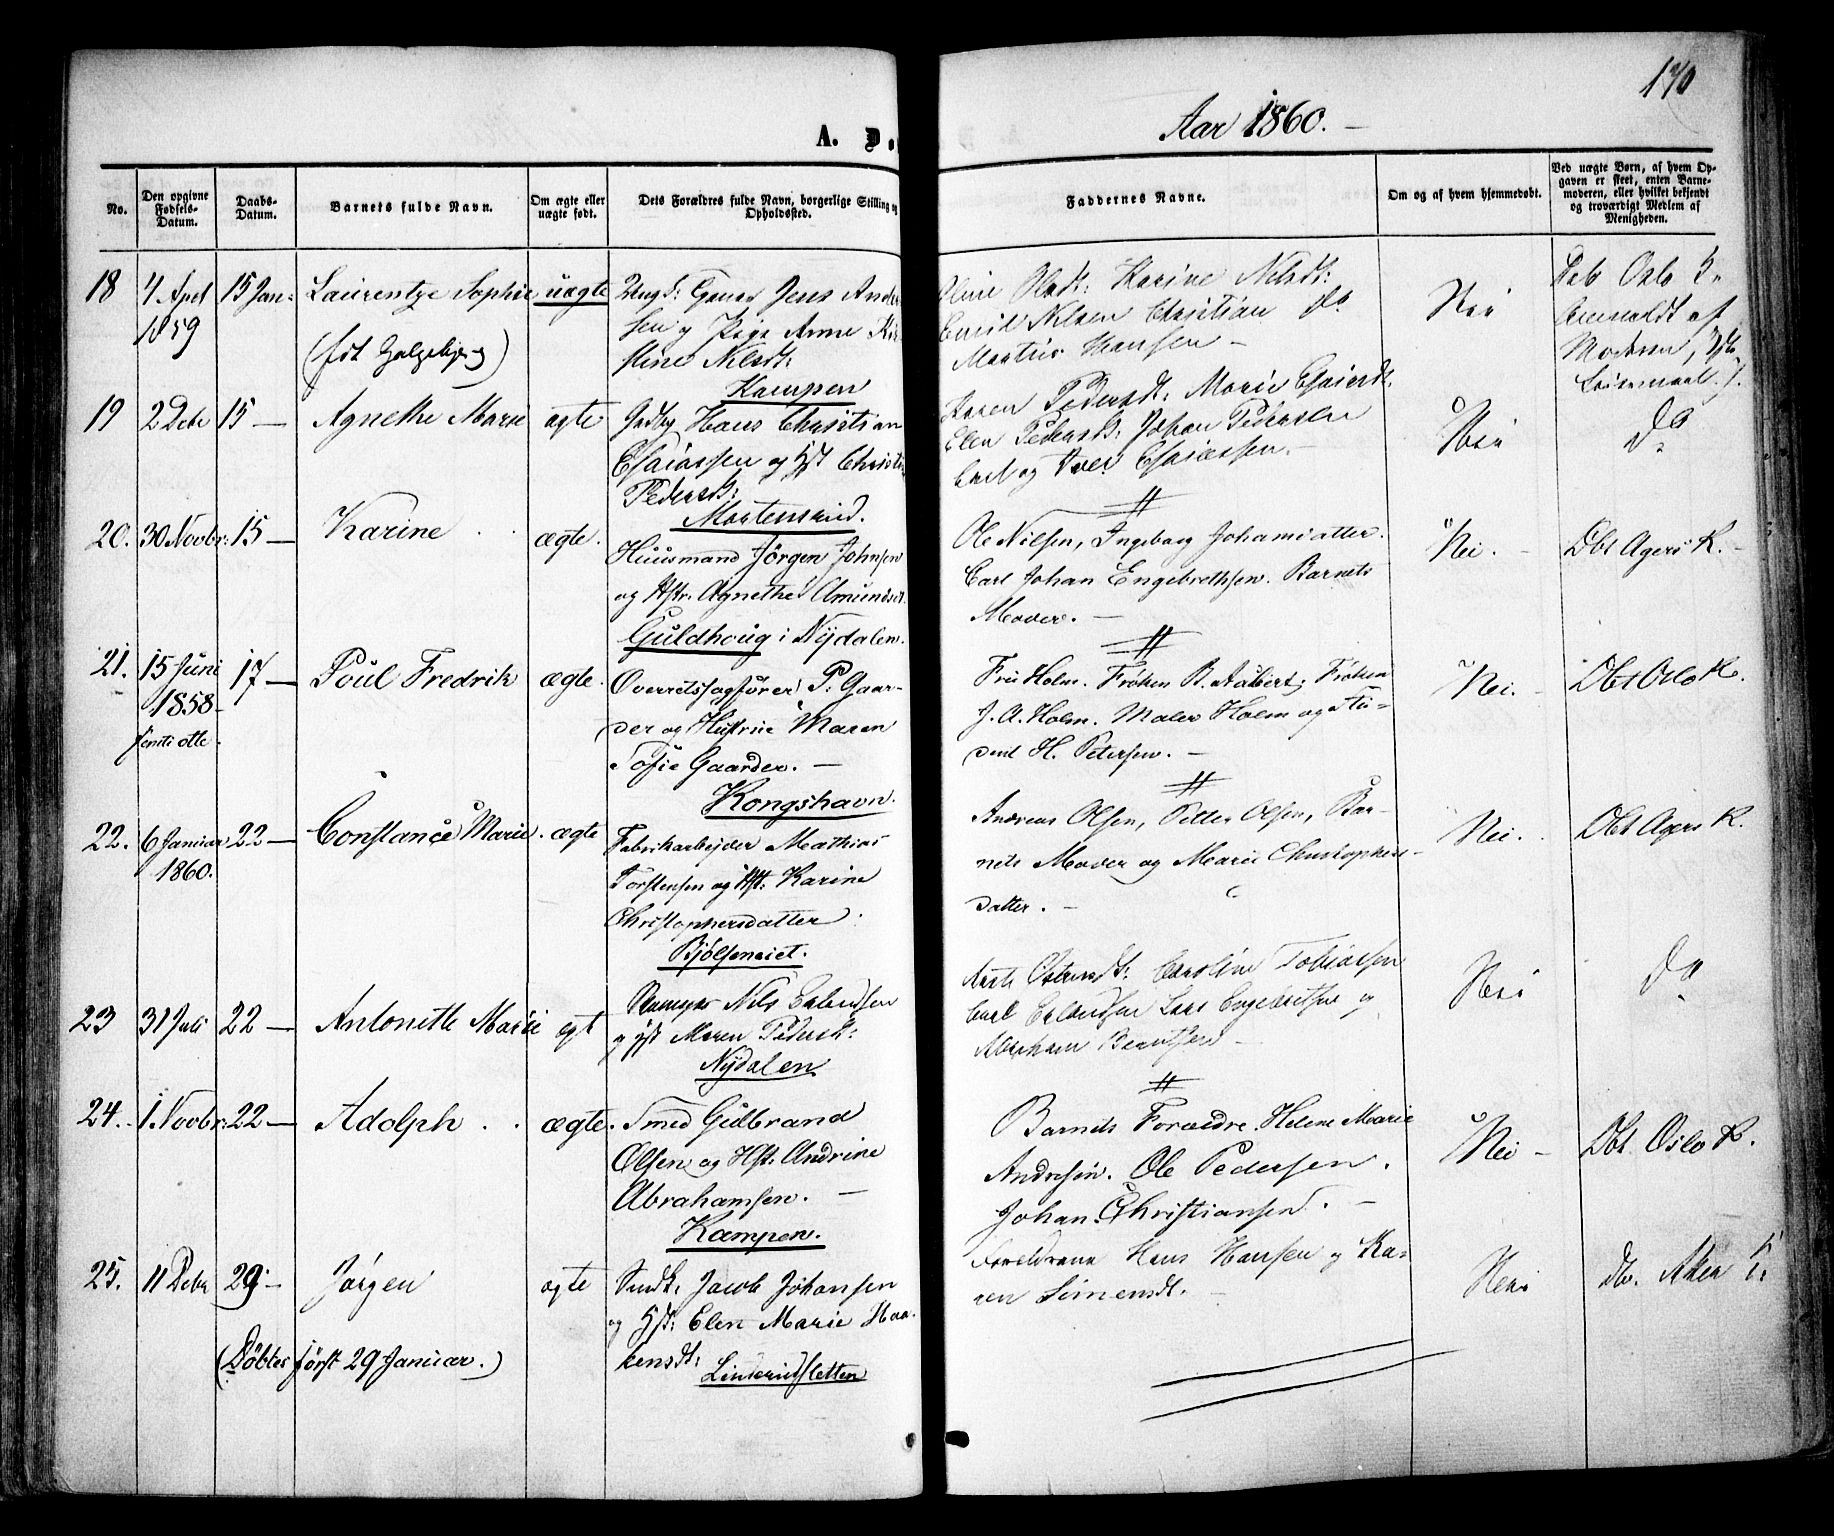 170
A. D.
Aar 1860. —
No.
Den opgivne Fødsels-Datum.
Daabs-Datum.
Barnets fulde Navn.
Om ægte eller uægte født.
Dets Forældres fulde Navn, borgerlige Stilling og Opholdssted.
Faddernes Navne.
Om og af hvem hjemmedøbt.
Ved uægte Børn, af hvem Opgaven er skeet, enten Barnemoderen, eller hvilket bekjendt og troværdigt Medlem af Menigheden.
18 4 April 15 Jan: Laurentze Sophie uægte Ungk: Jens Ander
1859 sen og Pige Anne Kir
(født stine Nilsdt:
Kampen
Olsdt: Karine Nilsdt:
Emil Nilsen Christian do
Martius Hansen —
Nei
Deb Oslo K.
af
Moderen,
19 2 Debr 15 — Agnethe Marie ægte Hans Christian
Esaiassen og Hst Christi
Pedersdt:
Mortensrud.
Karen Pedersdt: Marie Esaiasdt.
Elen Pedersdt: Johan Pedersen
Carl og Iver Esaiassen. —
Nei
Do
20. 30 Novbr: 15 — Karine ægte.
Huusmand Jörgen Johnsen
og Hstr. Agnethe Amundsdt.
Guldhoug i Nydalen.
Ole Nilsen, Ingeborg Johannsdatter.
Carl Johan Engebrethsen. Barnets
Moder. —
Nei. —
Dbt Agers K. —
21. 15 Juni 17 — Poul Fredrik ægte.
1858 —
femti otte.
Overretssagförer P. Gaar-
der og Hustrue Maren
Sofie Gaarder. —
Kongshavn.
Fru Holm. Fröken B. Aubert, Fröken
J. A. Holm. Maler Holm og Stu-
dent H. Petersen. —
Nei. —
Dbt Oslo K.
22. 6 Januar 22 — Constance Marie. ægte
1860.
Fabrikarbejder Mathias
Torstensen og Hst: Karine
Christophersdatter.
Bjölseneiet.
Andreas Olsen, Petter Olsen, Bar-
nets Moder og Marie Christophers-
datter. —
Nei.
Dbt Agers K.
23 31 Juli 22 — Antonette Marie egt
Nils Erlandsen
og Hst Maren Pedersdt:
Nydalen
Caroline Tobiassen
Carl Erlandsen Lars Engebretsen og
Abraham Berntsen —
Nei
Do
24. 1. Novbr: 22 — Adolph. ægte.
Smed Gulbrand
Olsen og Hst: Andrine
Abrahamsen. —
Kampen.
Barnets Forældre. Helene Marie
Andresen. Ole Pedersen.
Johan Christiansen. —
Nei —
Dbt. Oslo K.
25. 11 Debr 29 — Jørgen ægte
Jacob Johansen
og Hst: Elen Marie Haa-
kensdt:
Linderudsletten
(Döbtes først 29 Januar.)
Forældrene Hans Hansen og Ka-
ren Simensdt. —
Nei
Aker K.